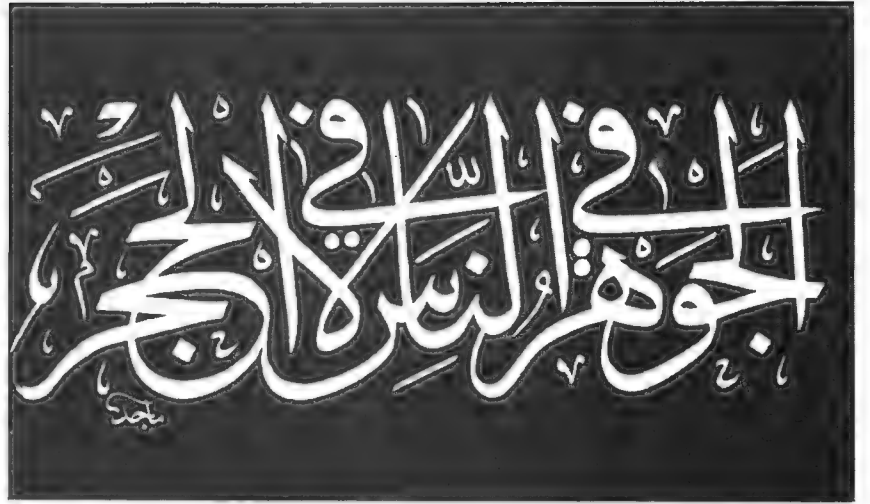 الجوهر في الناس لا في الحجر
ماجد